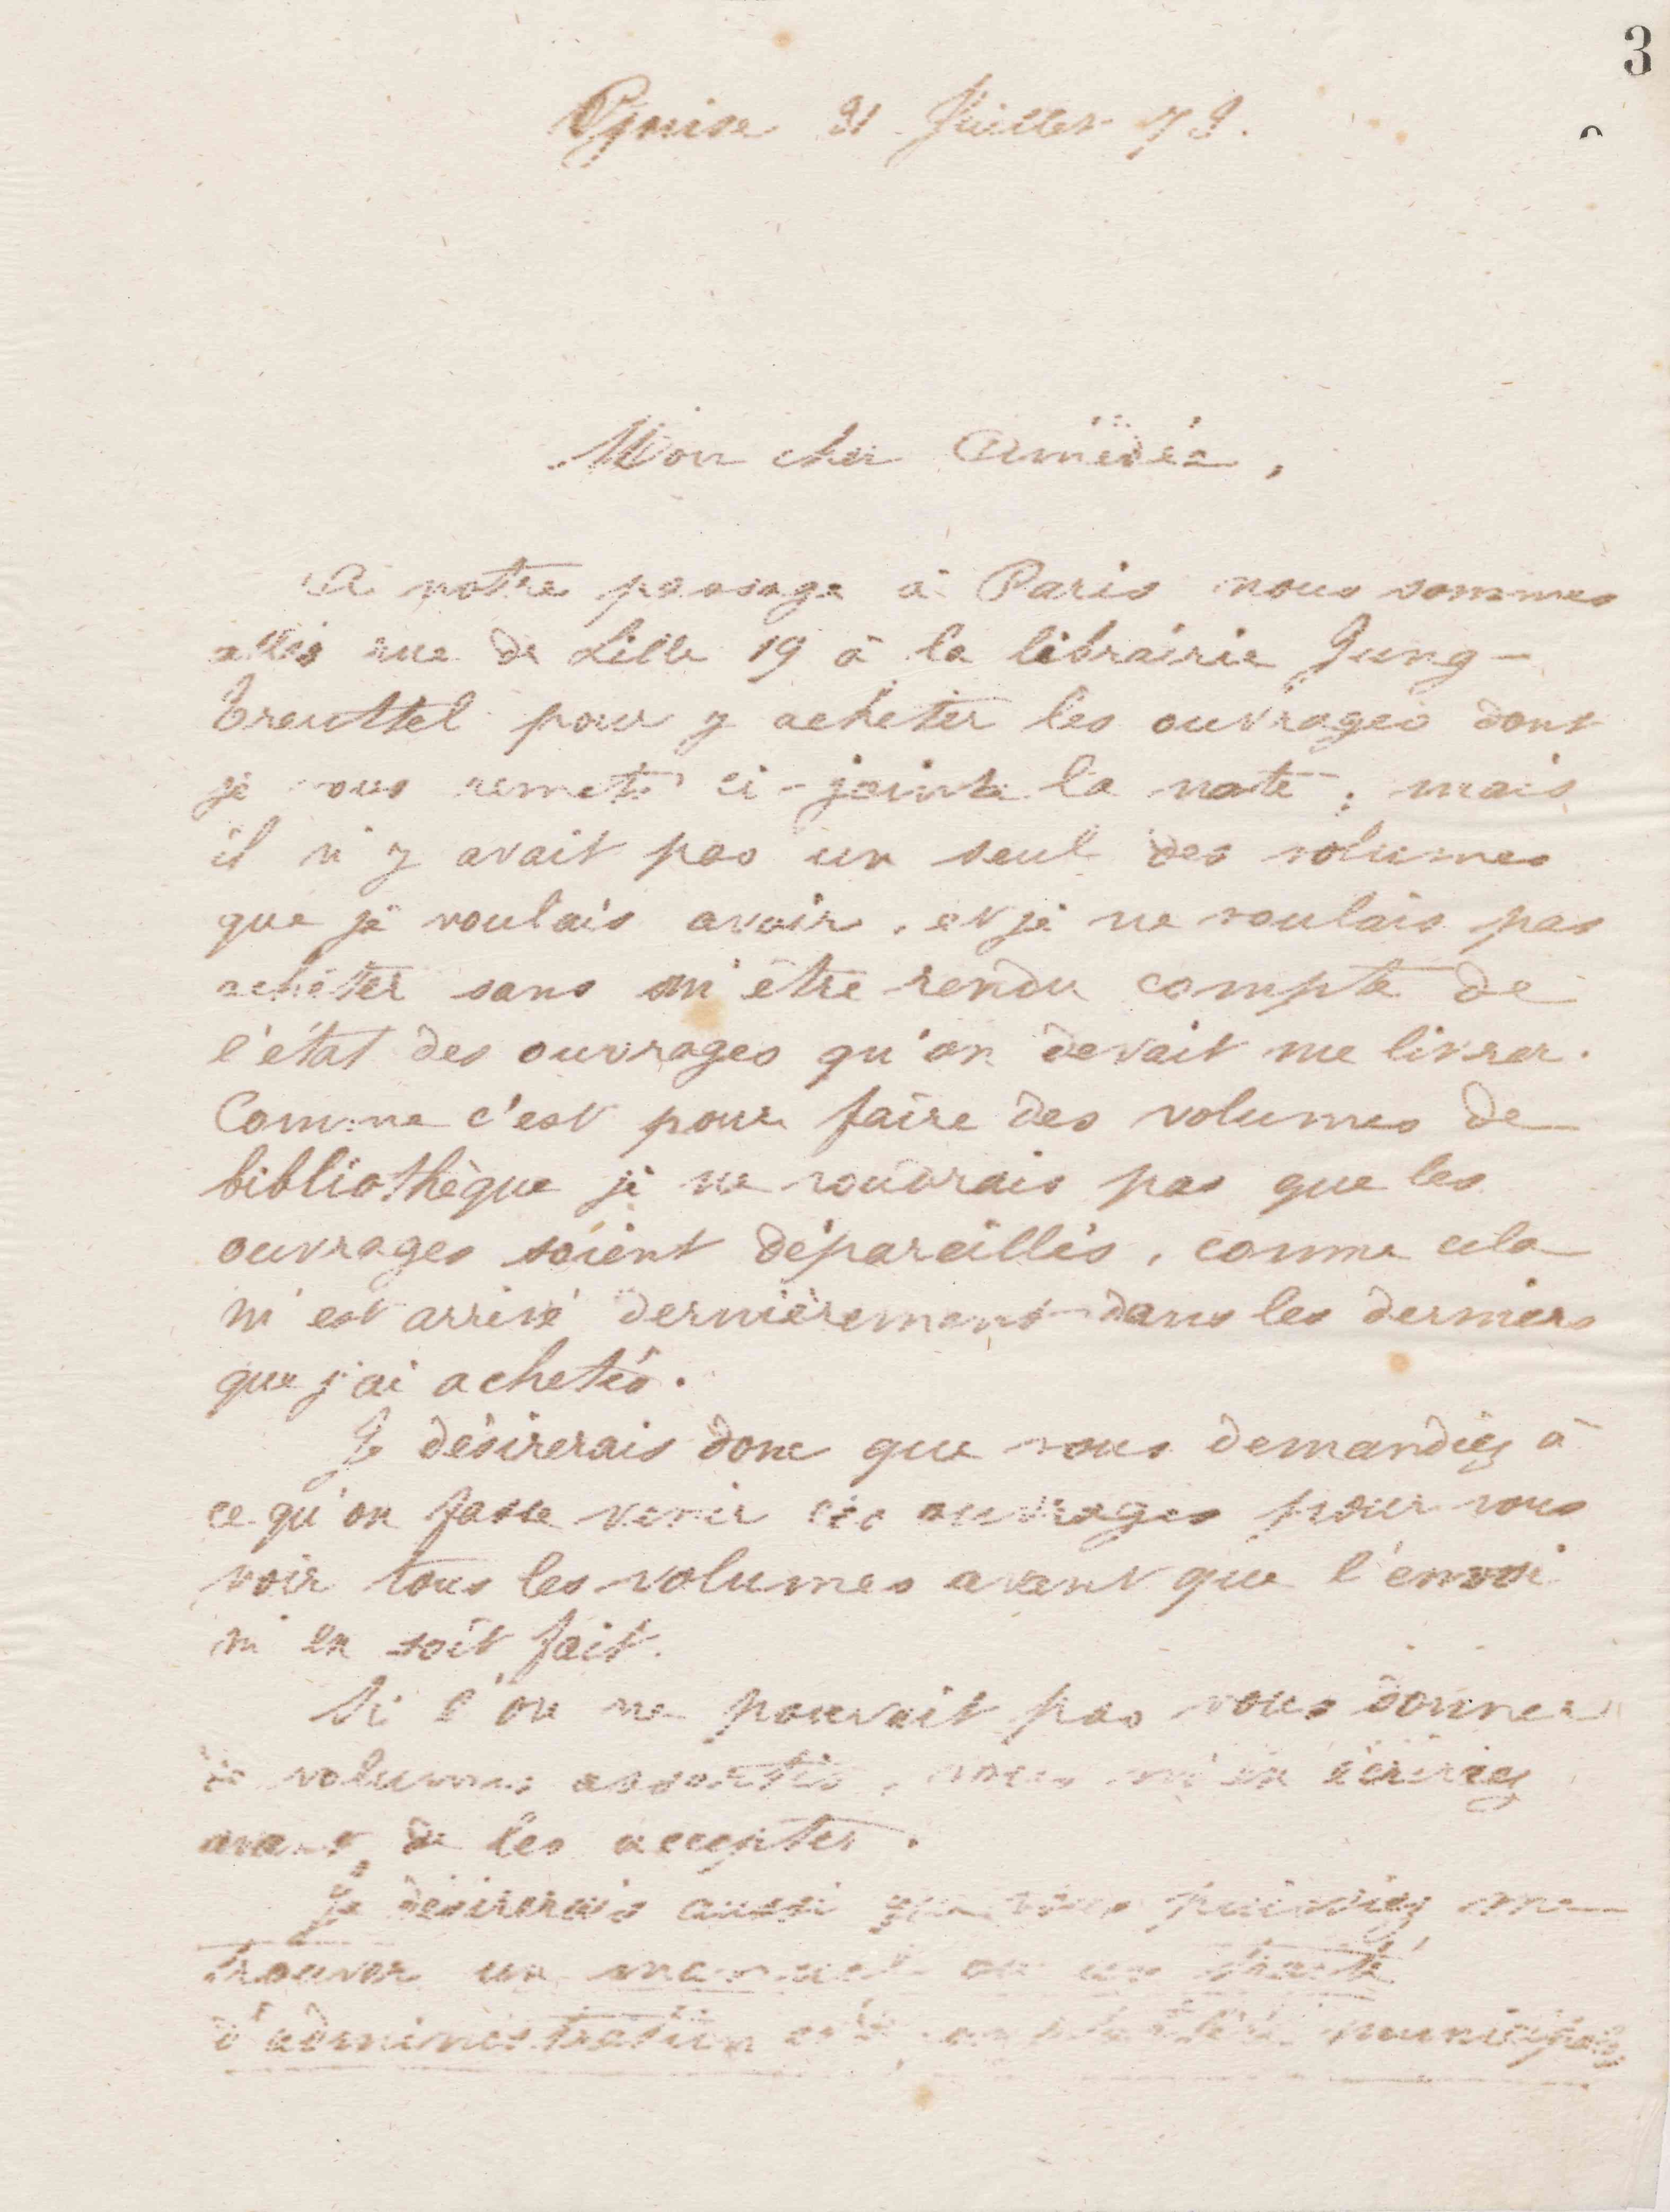 3
Guise 31 Juillet 73.
Mon cher Amédée,
A notre passage à Paris nous sommes
allés rue de Lille 19 à la librairie Jung-
Treuttel pour y acheter les ouvrages dont
je vous remets ci-jointe la note ; mais
il n'y avait pas un seul des volumes
que je voulais avoir, et je ne voulais pas
acheter sans m'être rendu compte de
l'état des ouvrages qu'on devait me livrer.
Comme c'est pour faire des volumes de
bibliothèque je ne voudrais pas que les
ouvrages soient dépareillés, comme cela
m'est arrivé dernièrement dans les derniers
que j'ai achetés.
Je désirerais donc que vous demandiez à
ce qu'on fasse venir ces ouvrages pour vous
voir tous les volumes avant que l'envoi
m'en soit fait.
Si l'on ne pouvait pas vous donner
de volumes assortis, vous m'en écririez
avant de les accepter.
Je désirerais aussi que vous puissiez me
trouver un manuel ou un traité
d'administration et de comptabilité municipale,